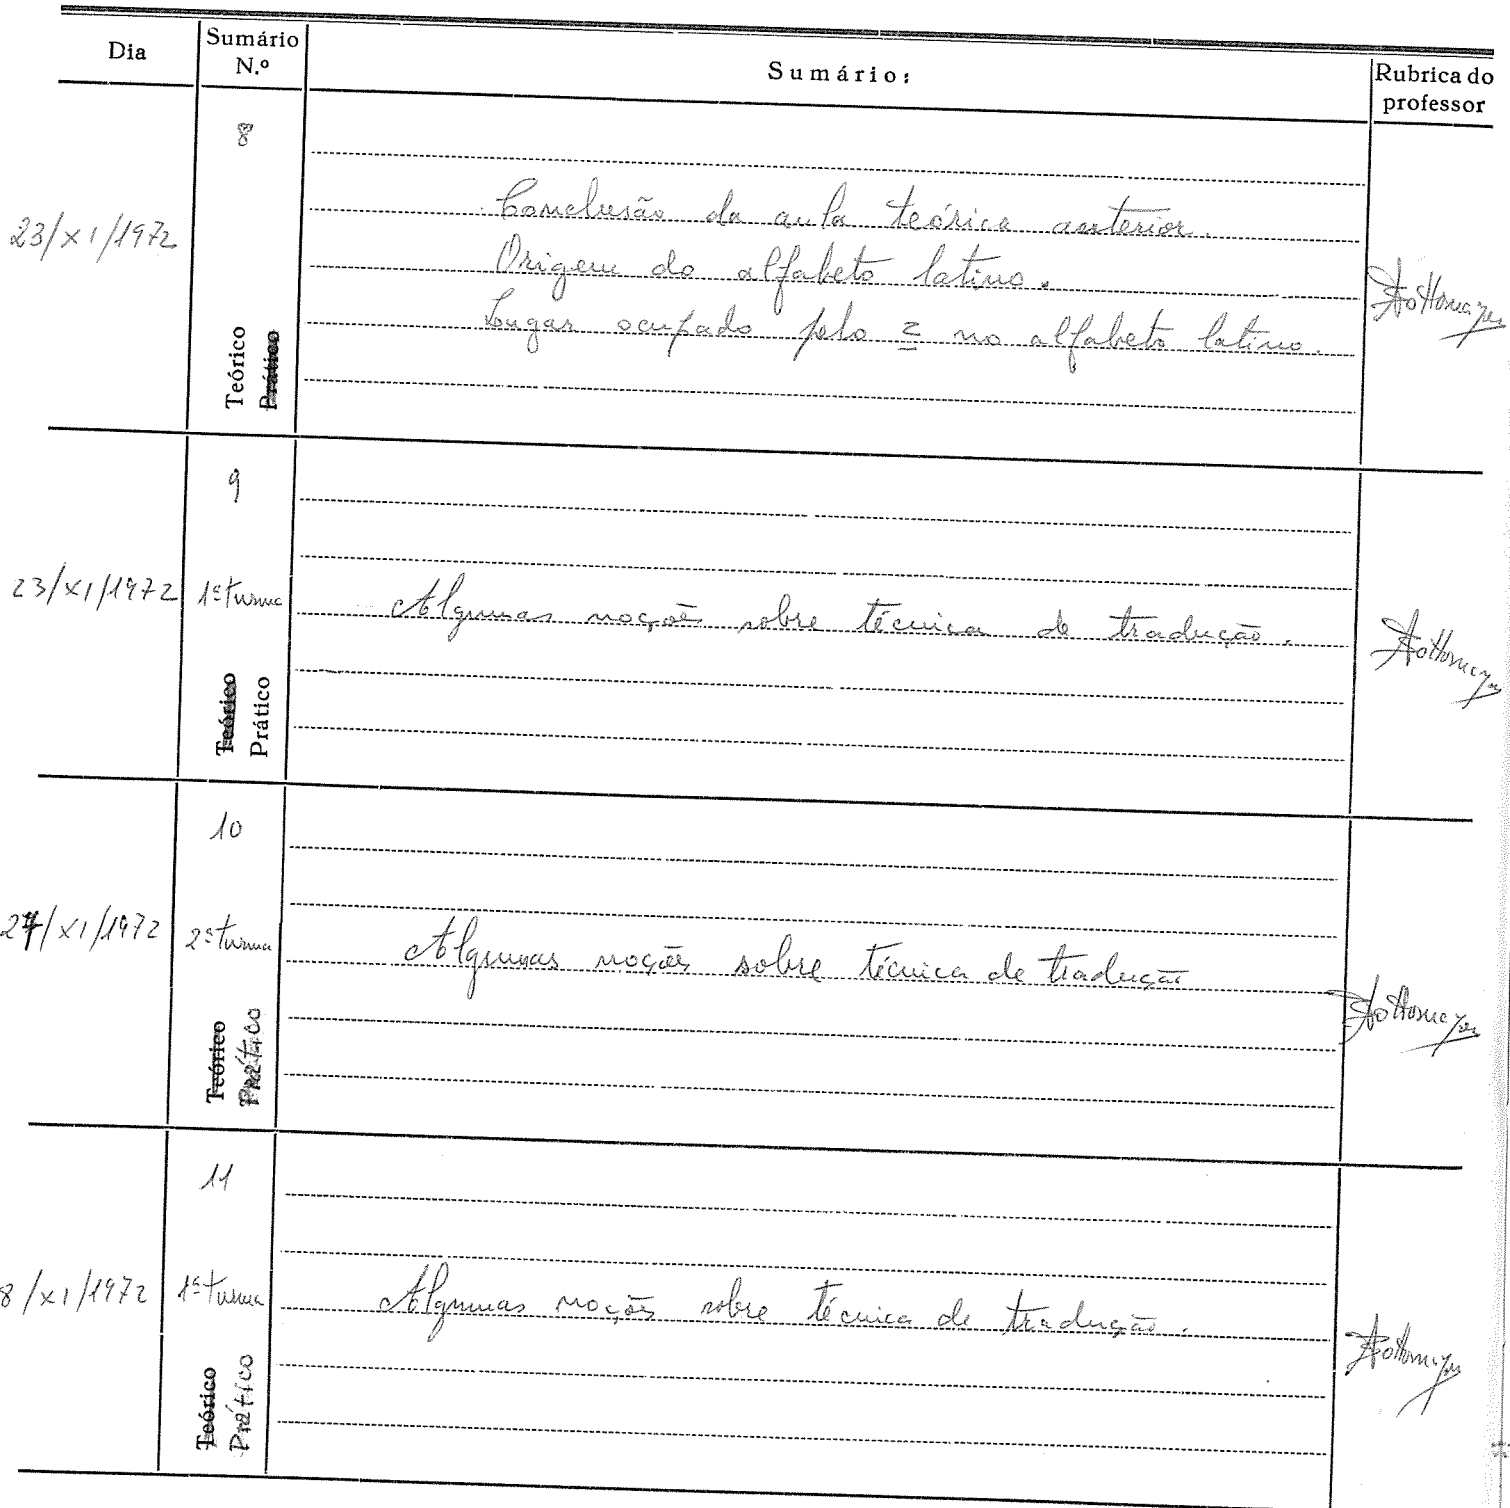 Dia
Sumário N.º
Sumário:
Rubrica do professor
23/XI/1972
8
Teórico
Prático
Conclusão da aula teórica anterior.
Origem do alfabeto latino.
Lugar ocupado pelo z no alfabeto latino.
23/XI/1972
9
1ª turma
Teórico
Prático
Algumas noções sobre técnica de tradução.
27/XI/1972
10
2ª turma
Teórico
Prático
Algumas noções sobre técnica de tradução
8/XI/1972
11
1ª turma
Teórico
Prático
Algumas noções sobre técnica de tradução.